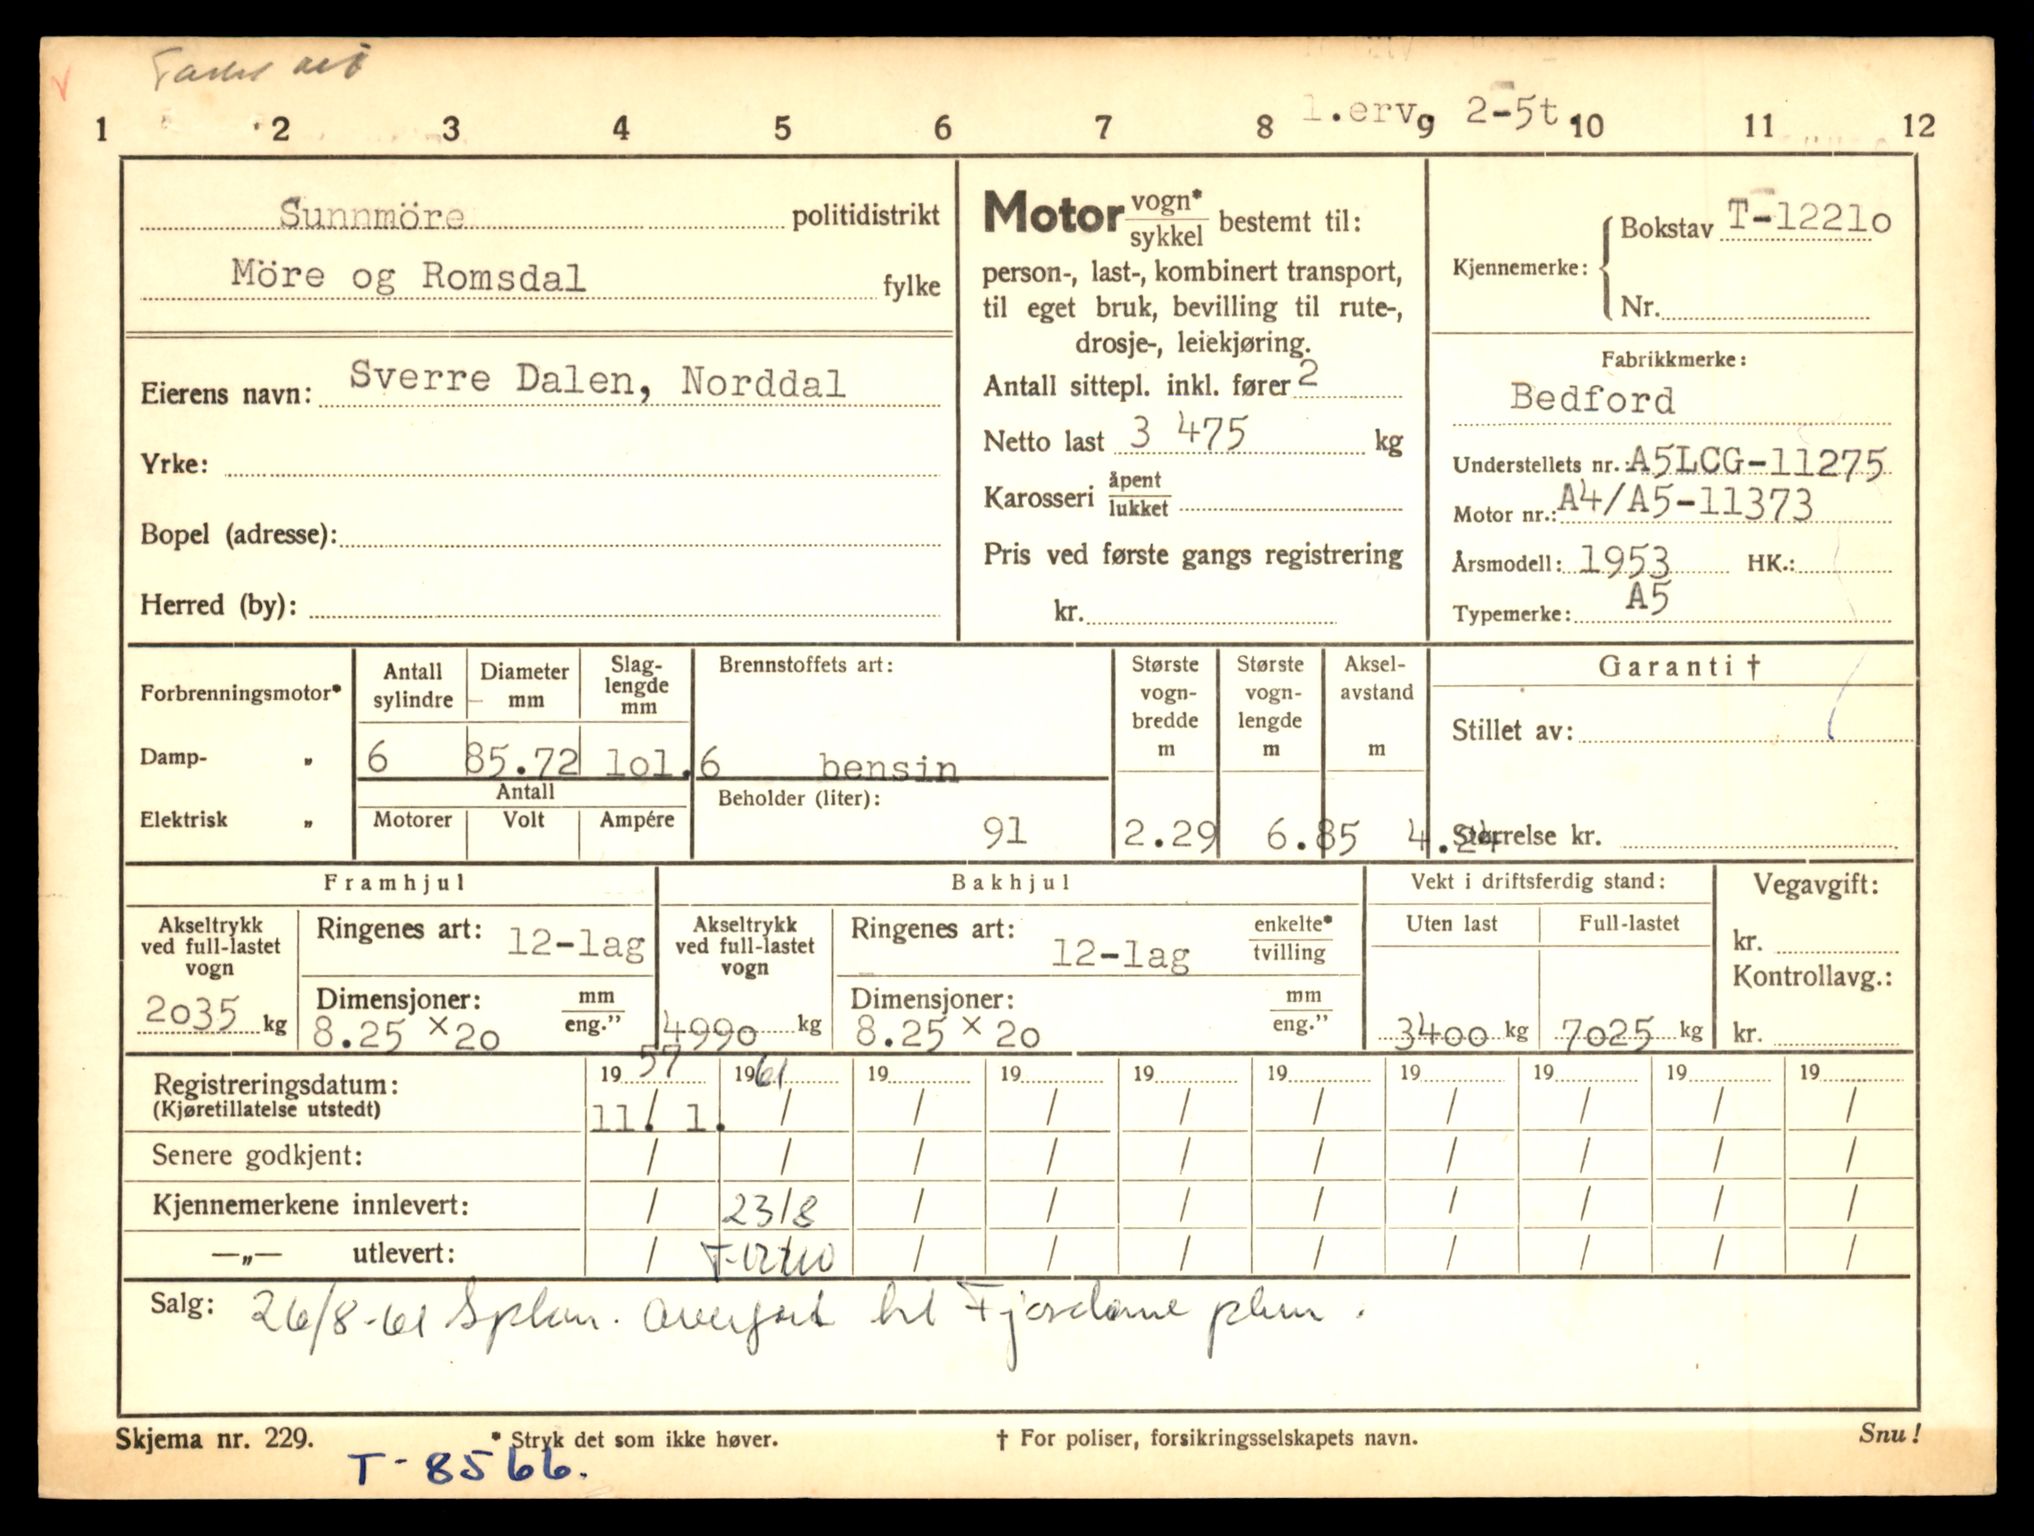 1.erv. 2-5t.
1 2 3 4 5 6 7 8 9 10 11 12
Sunnmöre politidistrikt
Möre og Romsdal fylke
Eierens navn: Sverre Dalen, Norddal
Yrke:
Bopel (adresse):
Herred (by):
Motor vogn* sykkel bestemt til:
person-, last-, kombinert transport,
til eget bruk, bevilling til rute-,
drosje-, leiekjøring.
Antall sittepl. inkl. fører 2
Netto last 3 475 kg
Karosseri åpent lukket
Pris ved første gangs registrering
kr.
Kjennemerke: Bokstav T-12210
Nr.
Fabrikkmerke:
Bedford
Understellets nr.: A5LCG-11275
Motor nr.: A4/A5-11373
Årsmodell: 1953 HK.:
Typemerke: A5
Forbrenningsmotor*
Damp- „
Elektrisk „
Antall sylindre
6
Diameter mm
85.72
Slag-lengde mm
101.6
Antall
Motorer Volt Ampére
Brennstoffets art:
bensin
Beholder (liter):
91
Største vogn-bredde m
2.29
Største vogn-lengde m
6.85
Aksel-avstand m
4.24
Garanti †
Stillet av:
Størrelse kr.
Framhjul
Akseltrykk
ved full-lastet
vogn
2035 kg
Ringenes art: 12-lag
Dimensjoner: mm eng."
8.25 x 20
Bakhjul
Akseltrykk
ved full-lastet
vogn
4990 kg
Ringenes art: 12-lag enkelte* tvilling
Dimensjoner: mm eng."
8.25 x 20
Vekt i driftsferdig stand:
Uten last Full-lastet
3400 kg 7025 kg
Vegavgift:
kr.
Kontrollavg.:
kr.
Registreringsdatum: 19 57 19 61 19 19 19 19 19 19 19 19
(Kjøretillatelse utstedt) 11. / 1. / / / / / / / / /
Senere godkjent: / / / / / / / / / /
Kjennemerkene innlevert: / 23/8 / / / / / / / /
—„— utlevert: / T-12210 / / / / / / / /
Salg: 26/8-61 Spkm. Overført til Fjordane pkm.
Skjema nr. 229. * Stryk det som ikke høver. † For poliser, forsikringsselskapets navn. Snu!
T-8566.